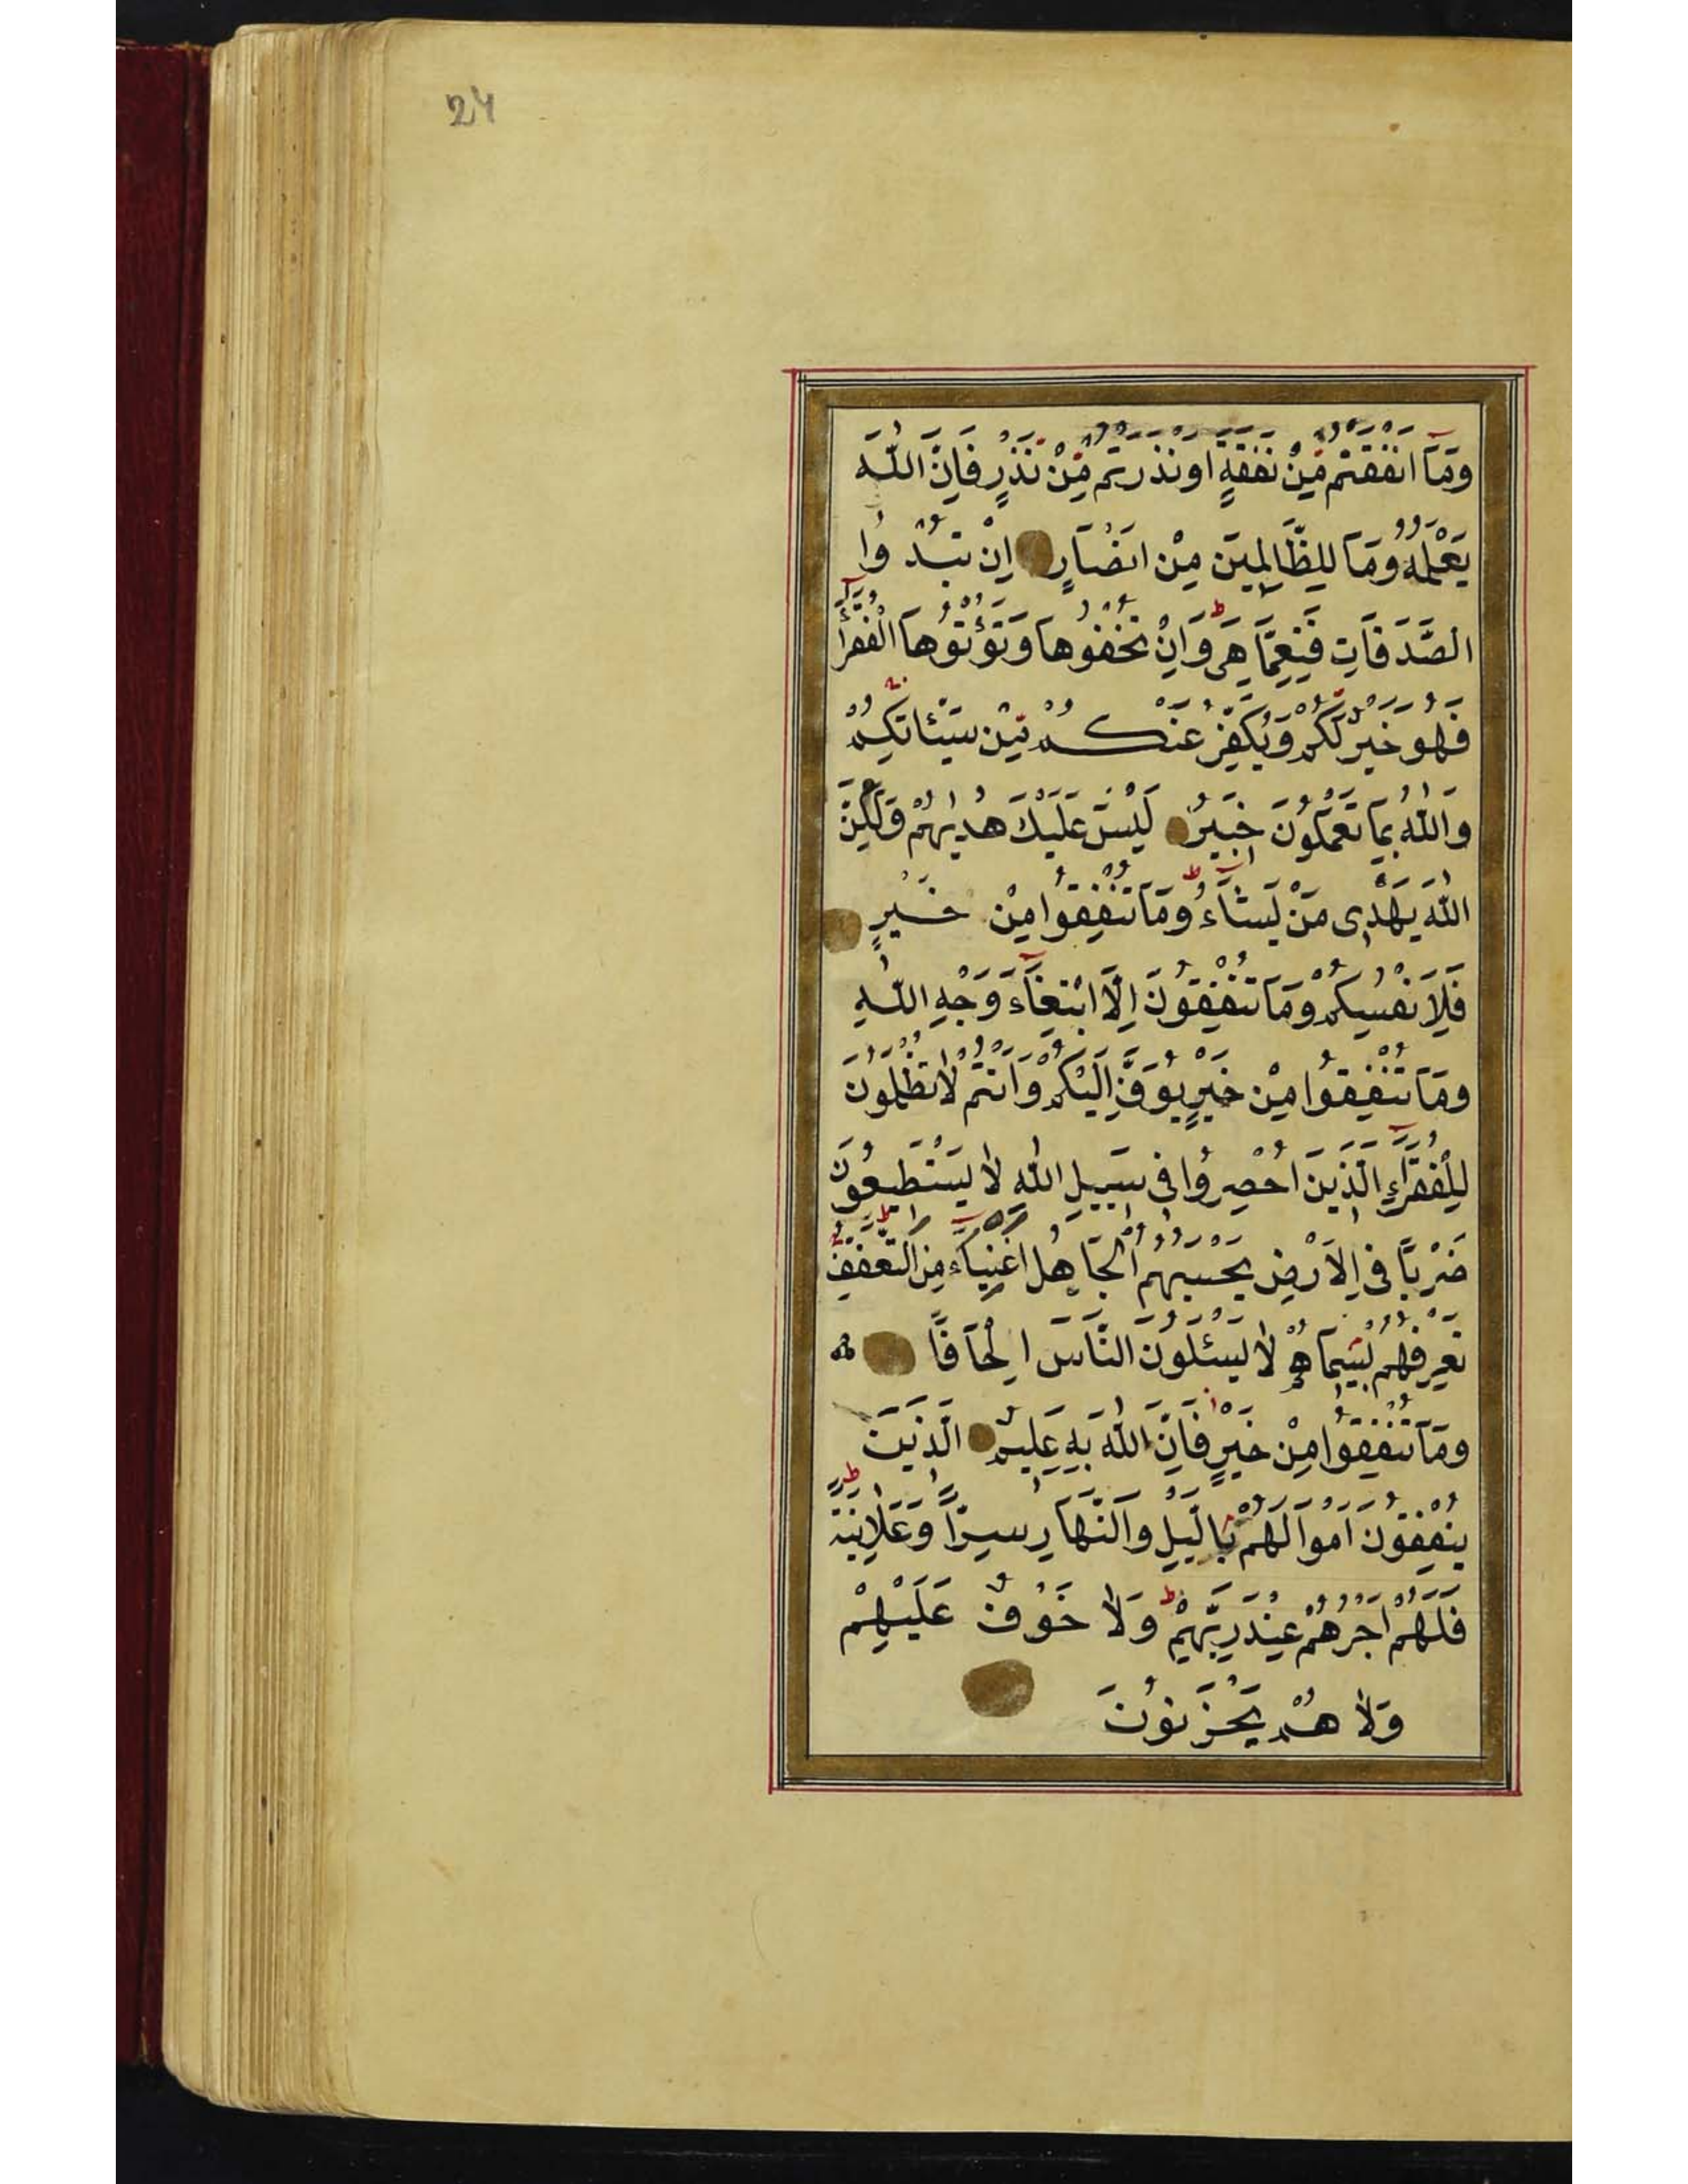 24
وَمَآ اَنْفَقْتُمْ مِّنْ نَفَقَةٍ اَوْ نَذَرْتُمْ مِّنْ نَّذْرٍ فَاِنَّ اللّٰهَ
يَعْلَمُهُ وَمَا لِلظَّالِمِينَ مِنْ اَنْصَارٍ اِنْ تُبْدُوا
الصَّدَقَاتِ فَنِعِمَّا هِيَ وَاِنْ تُخْفُوهَا وَتُؤْتُوهَا الْفُقَرَآءَ
فَهُوَ خَيْرٌ لَّكُمْ وَيُكَفِّرُ عَنْكُمْ مِّنْ سَيِّئَاتِكُمْ
وَاللّٰهُ بِمَا تَعْمَلُونَ خَبِيرٌ لَيْسَ عَلَيْكَ هُدٰيهُمْ وَلٰكِنَّ
اللّٰهَ يَهْدِى مَنْ يَشَآءُ وَمَا تُنْفِقُوا مِنْ خَيْرٍ
فَلِاَنْفُسِكُمْ وَمَا تُنْفِقُونَ اِلَّا ابْتِغَآءَ وَجْهِ اللّٰهِ
وَمَا تُنْفِقُوا مِنْ خَيْرٍ يُوَفَّ اِلَيْكُمْ وَاَنْتُمْ لَا تُظْلَمُونَ
لِلْفُقَرَآءِ الَّذِينَ اُحْصِرُوا فِى سَبِيلِ اللّٰهِ لَا يَسْتَطِيعُونَ
ضَرْبًا فِى الْاَرْضِ يَحْسَبُهُمُ الْجَاهِلُ اَغْنِيَآءَ مِنَ التَّعَفُّفِ
تَعْرِفُهُمْ بِسِيمَاهُمْ لَا يَسْئَلُونَ النَّاسَ اِلْحَافًا
وَمَا تُنْفِقُوا مِنْ خَيْرٍ فَاِنَّ اللّٰهَ بِهِ عَلِيمٌ الَّذِينَ
يُنْفِقُونَ اَمْوَالَهُمْ بِالَّيْلِ وَالنَّهَارِ سِرًّا وَعَلَانِيَةً
فَلَهُمْ اَجْرُهُمْ عِنْدَ رَبِّهِمْ وَلَا خَوْفٌ عَلَيْهِمْ
وَلَا هُمْ يَحْزَنُونَ